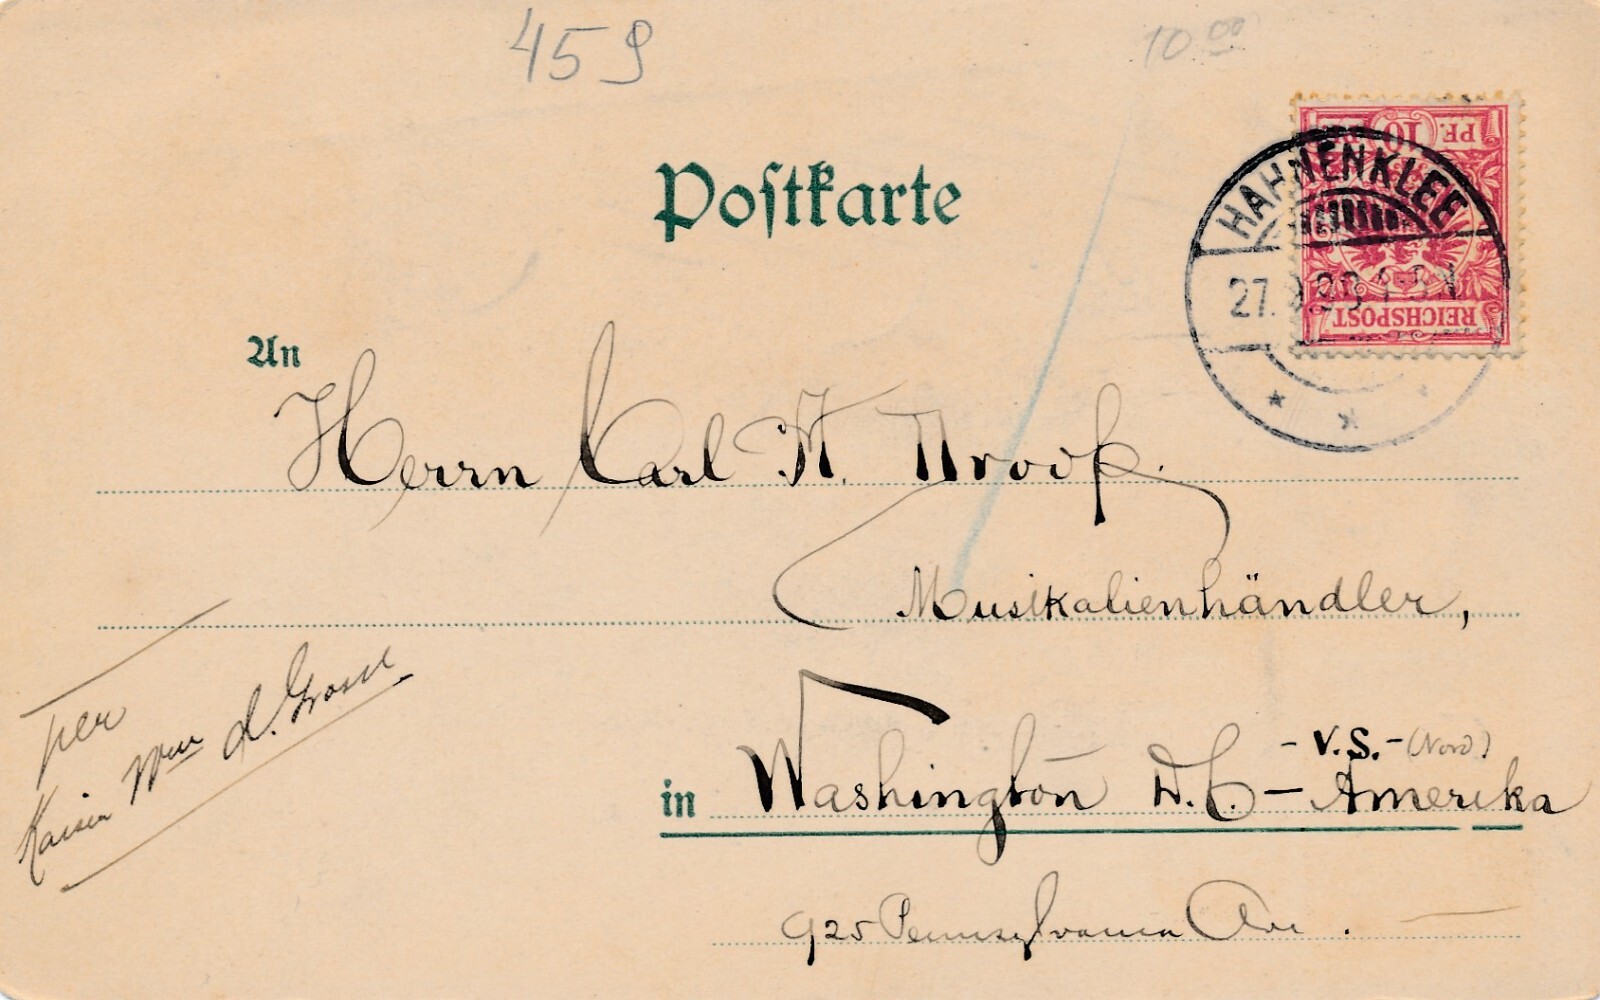 459
10.00
Postkarte
10 PF.
REICHSPOST
HAHNENKLEE
27.
An
Herrn Carl A. Droop.
Musikalienhändler,
per
Kaiser Wm d. Grosse
- V.S. - (Nord)
in Washington D.C. - Amerika
925 Pennsylvania Av.